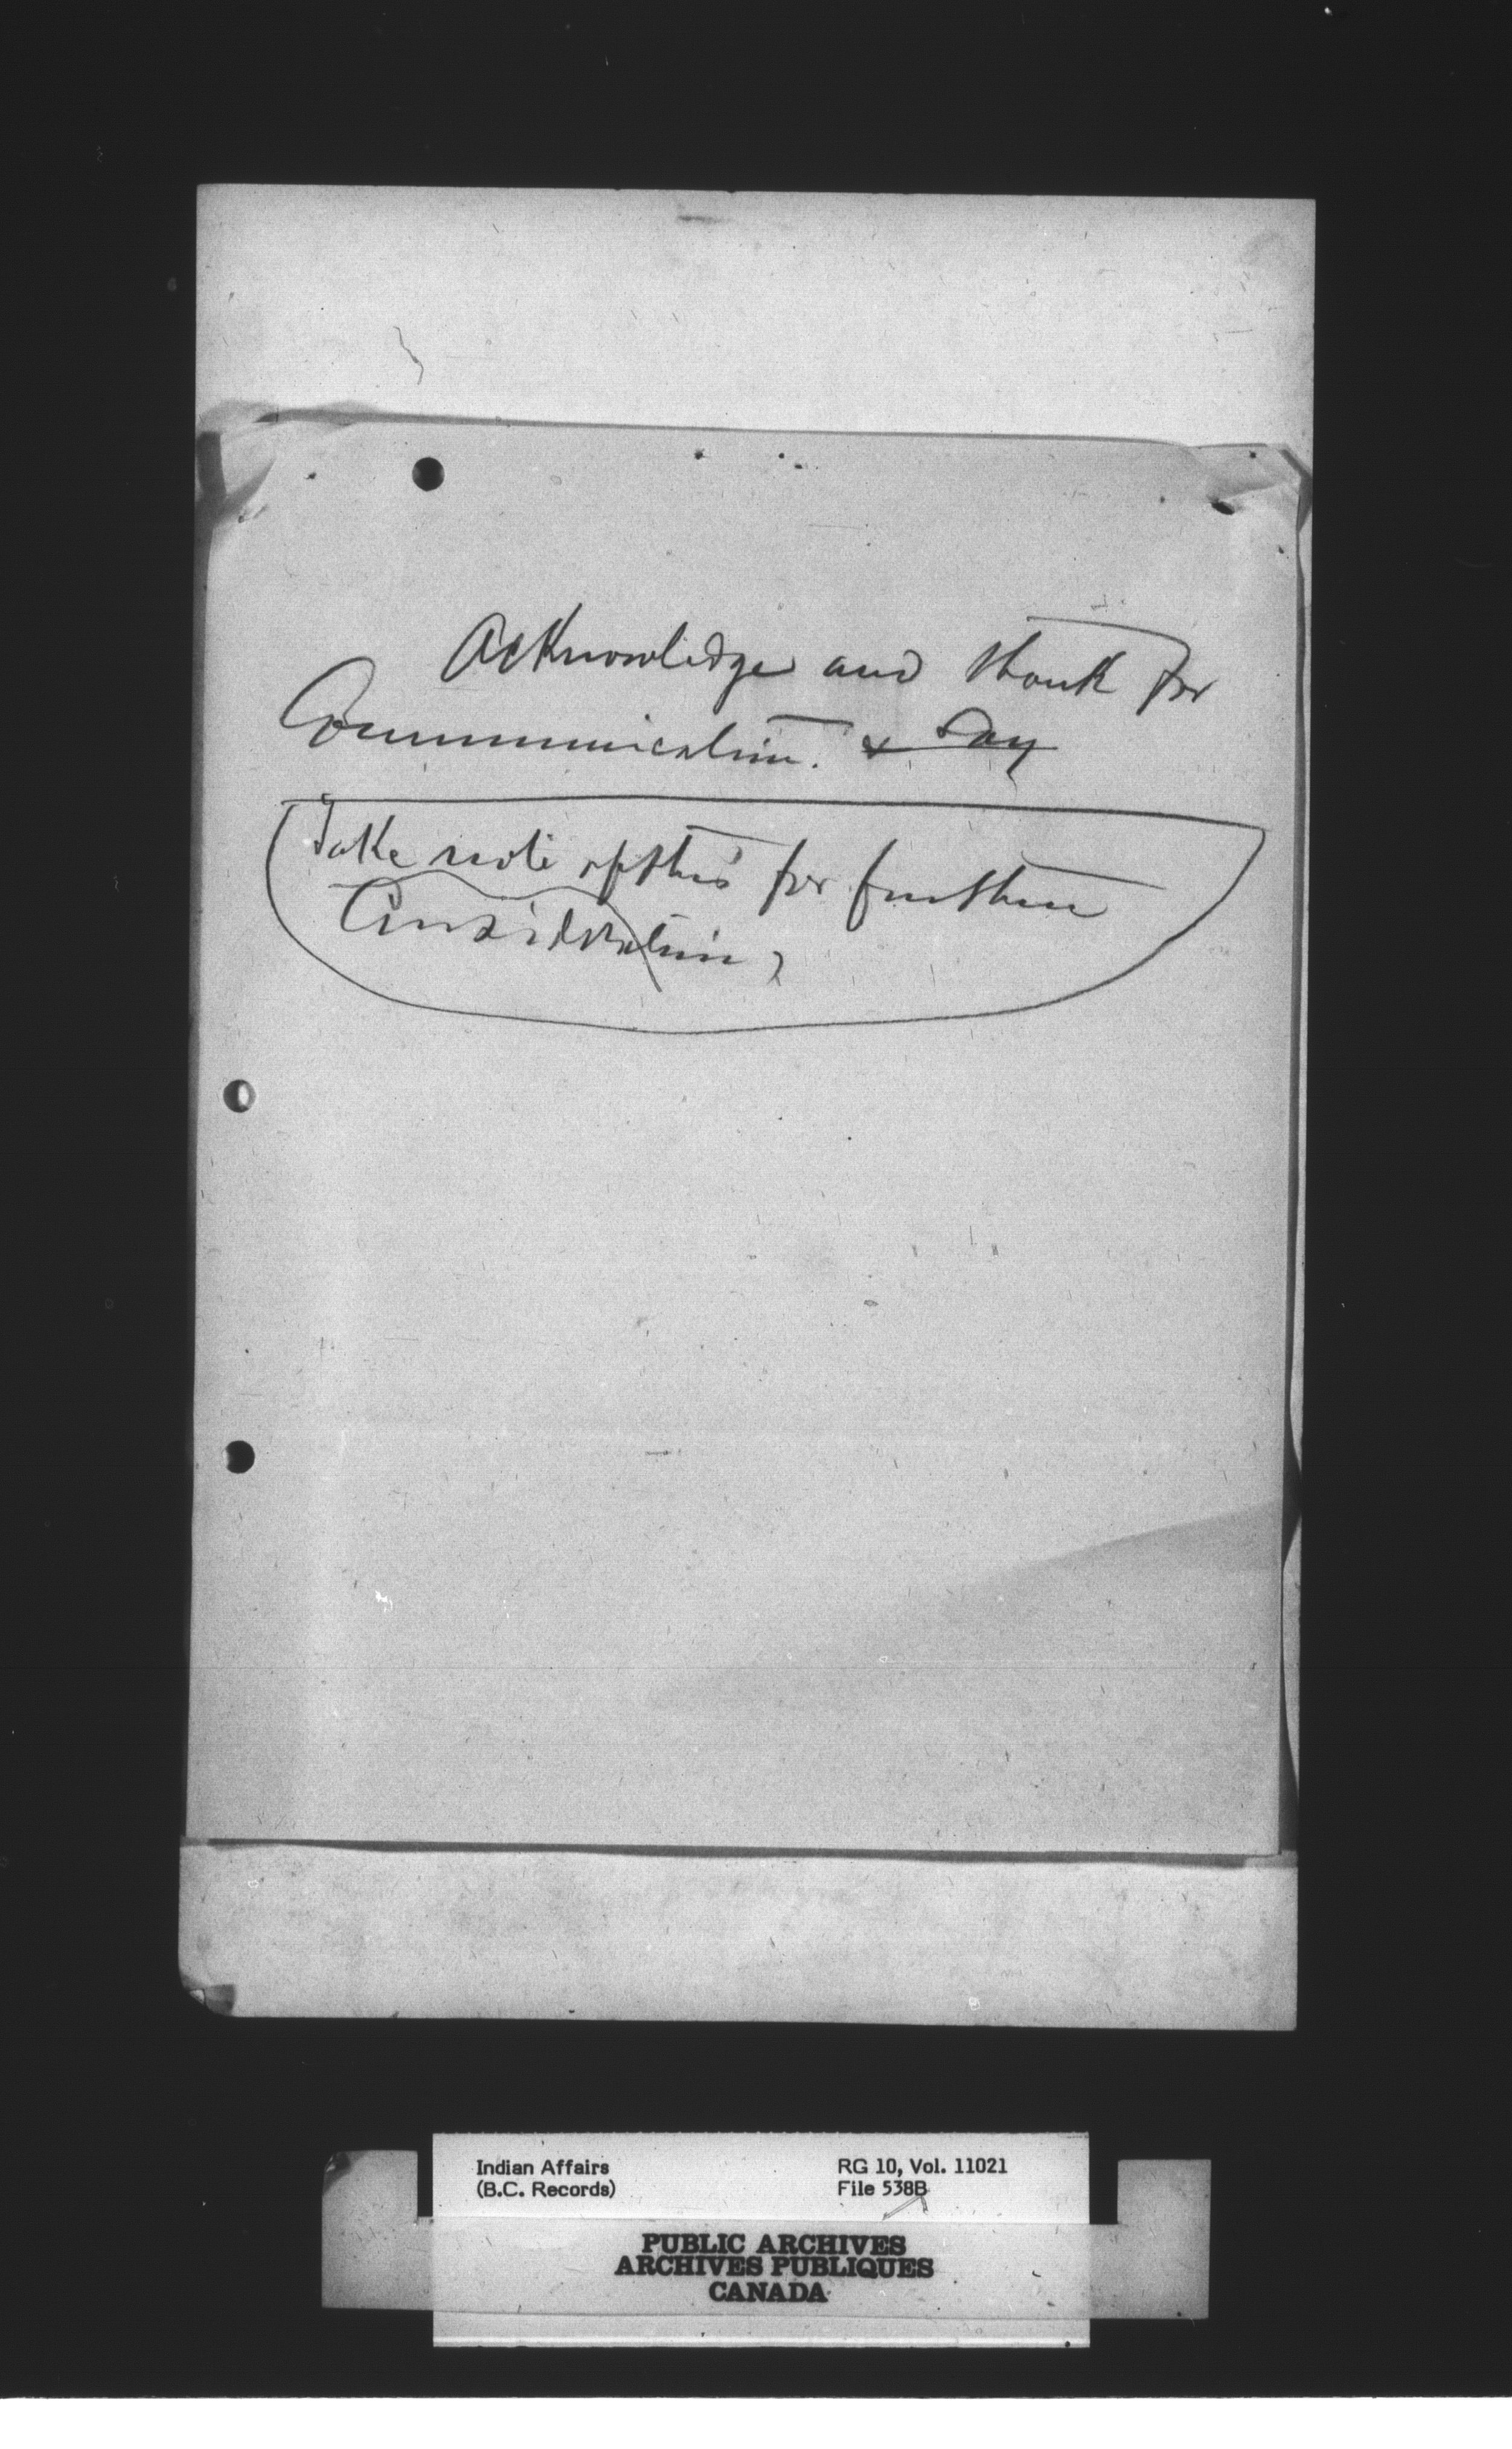 Acknowledge and thank for
Communication. & say
Take note of this for further
Consideration
Indian Affairs
(B.C. Records)
RG 10, Vol. 11021
File 538B
PUBLIC ARCHIVES
ARCHIVES PUBLIQUES
CANADA